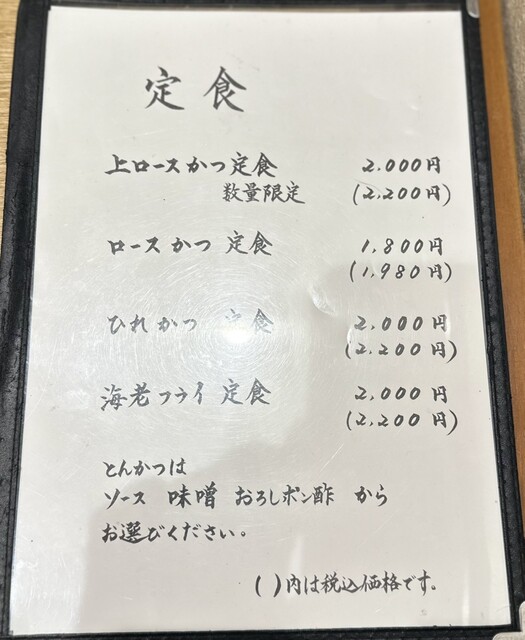 定食
上ロースかつ定食 2.000円
数量限定 (2,200円)
ロースかつ 定食 1,800円
(1,980円)
ひれかつ 定食 2,000円
(2,200円)
海老フライ 定食 2,000円
(2,200円)
とんかつは
ソース 味噌 おろしポン酢 から
お選びください。
( )内は税込価格です。